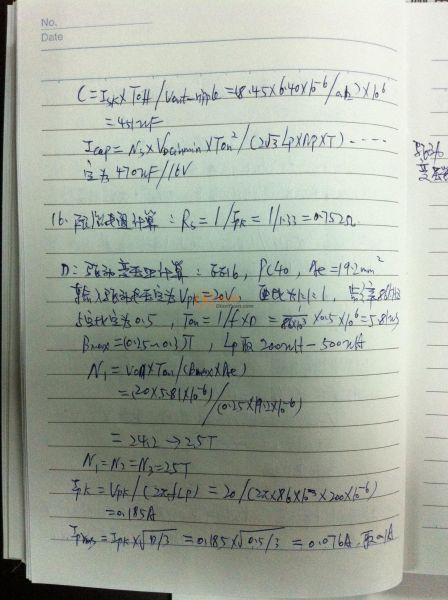 No.
Date
C = Isk × Toff / Vout-ripple = (8.45×6.40×10⁻⁶/0.12)×10⁶
= 451uF
Icap = Ns × VDCinmin × Ton² / (2√3 Lp × Np × T) ----
定为470uF/16V
16. 限流电阻计算: Rs = 1/Ipk = 1/1.33 = 0.752Ω
D: 驱动变压器计算: EE16, PC40, Ae = 19.2mm²
输入驱动电压定为Vpk = 20V, 匝比为1:1:1, 频率86KHz
占空比定为0.5, Ton = 1/f × D = 1/86×10³ × 0.5 × 10⁶ = 5.81us
Bmax = 0.25~0.3T, Lp取200uH – 500uH
N1 = Von × Ton/(Bmax × Ae)
= (20×5.81×10⁻⁶)/(0.25×19.2×10⁻⁶)
= 24.2 → 25T
N1 = N2 = N3 = 25T
Ipk = Vpk/(2πfLp) = 20/(2π×86×10³×200×10⁻⁶)
= 0.185A
Iprms = Ipk×√D/3 = 0.185×√0.5/3 = 0.076A, 取0.1A